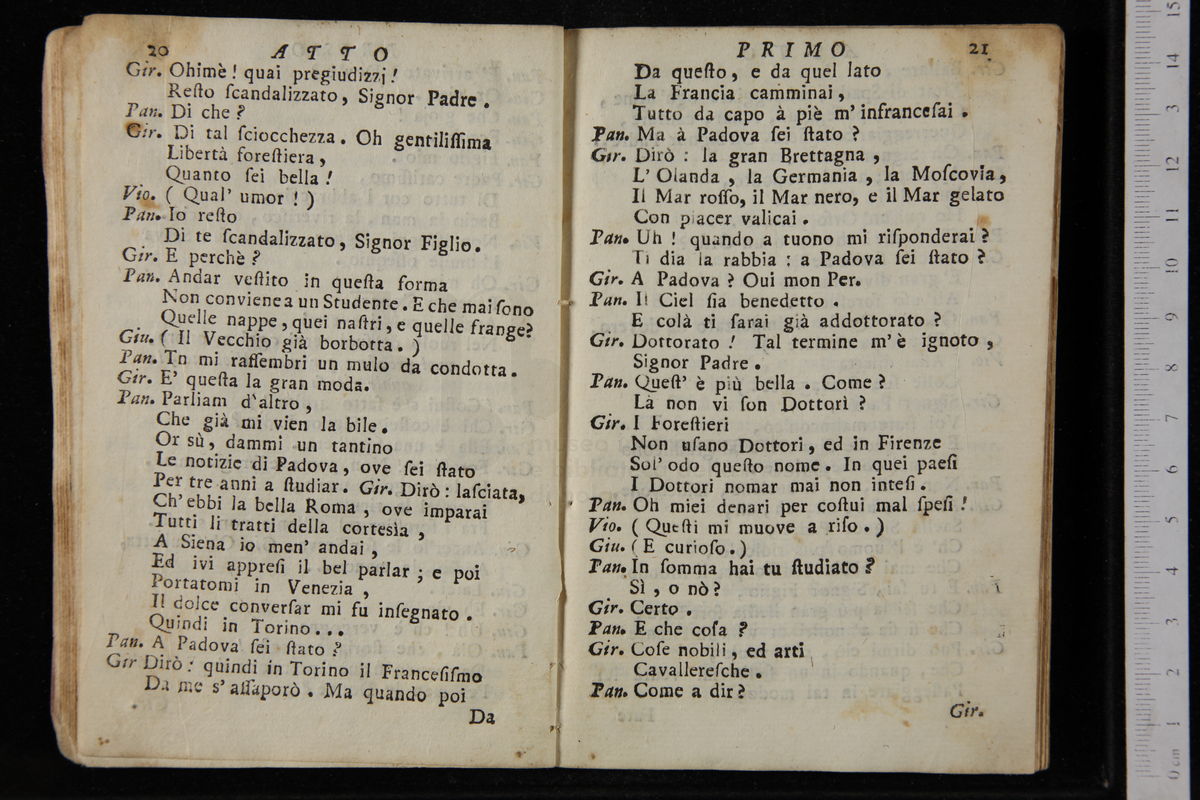 20 ATTO
Gir. Ohimè! quai pregiudizzj!
Reſto ſcandalizzato, Signor Padre.
Pan. Di che?
Gir. Di tal ſciocchezza. Oh gentiliſſima
Libertà foreſtiera,
Quanto ſei bella!
Vio. (Qual' umor!)
Pan. Io reſto
Di te ſcandalizzato, Signor Figlio.
Gir. E perchè?
Pan. Andar veſtito in queſta forma
Non conviene a un Studente. E che mai ſono
Quelle nappe, quei naſtri, e quelle frange?
Giu. (Il Vecchio già borbotta.)
Pan. Tn mi raſſembri un mulo da condotta.
Gir. E' queſta la gran moda.
Pan. Parliam d'altro,
Che già mi vien la bile.
Or sù, dammi un tantino
Le notizie di Padova, ove ſei ſtato
Per tre anni a ſtudiar. Gir. Dirò: laſciata,
Ch' ebbi la bella Roma, ove imparai
Tutti li tratti della cortesìa,
A Siena io men' andai,
Ed ivi appreſi il bel parlar; e poi
Portatomi in Venezia,
Il dolce converſar mi fu inſegnato.
Quindi in Torino...
Pan. A Padova ſei ſtato?
Gir Dirò: quindi in Torino il Franceſiſmo
Da me s' aſſaporò. Ma quando poi
Da
PRIMO 21
Da queſto, e da quel lato
La Francia camminai,
Tutto da capo à piè m' infranceſai.
Pan. Ma à Padova ſei ſtato?
Gir. Dirò: la gran Brettagna,
L' Olanda, la Germania, la Moſcovia,
Il Mar roſſo, il Mar nero, e il Mar gelato
Con piacer valicai.
Pan. Uh! quando a tuono mi riſponderai?
Ti dia la rabbia: a Padova ſei ſtato?
Gir. A Padova? Oui mon Per.
Pan. Il Ciel ſia benedetto.
E colà ti ſarai già addottorato?
Gir. Dottorato! Tal termine m' è ignoto,
Signor Padre.
Pan. Queſt' è più bella. Come?
Là non vi ſon Dottori?
Gir. I Foreſtieri
Non uſano Dottori, ed in Firenze
Sol' odo queſto nome. In quei paeſi
I Dottori nomar mai non inteſi.
Pan. Oh miei denari per coſtui mal ſpeſi!
Vio. (Queſti mi muove a riſo.)
Giu. (E curioſo.)
Pan. In ſomma hai tu ſtudiato?
Sì, o nò?
Gir. Certo.
Pan. E che coſa?
Gir. Coſe nobili, ed arti
Cavallereſche.
Pan. Come a dir?
Gir.
0 cm 1 2 3 4 5 6 7 8 9 10 11 12 13 14 15